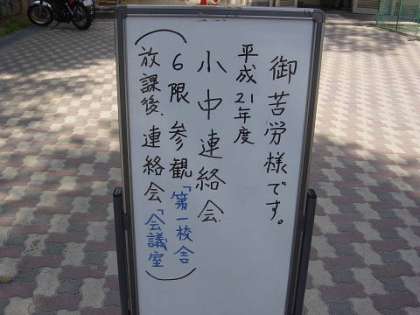 御苦労様です。
平成21年度
小中連絡会
(6限 参観「第一校舎
放課後、連絡会「会議室)